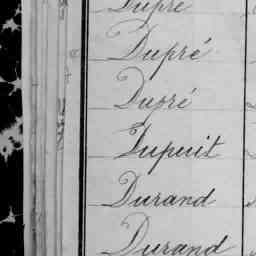 Dupré
Dupré
Dupré
Dupuit
Durand
Durand